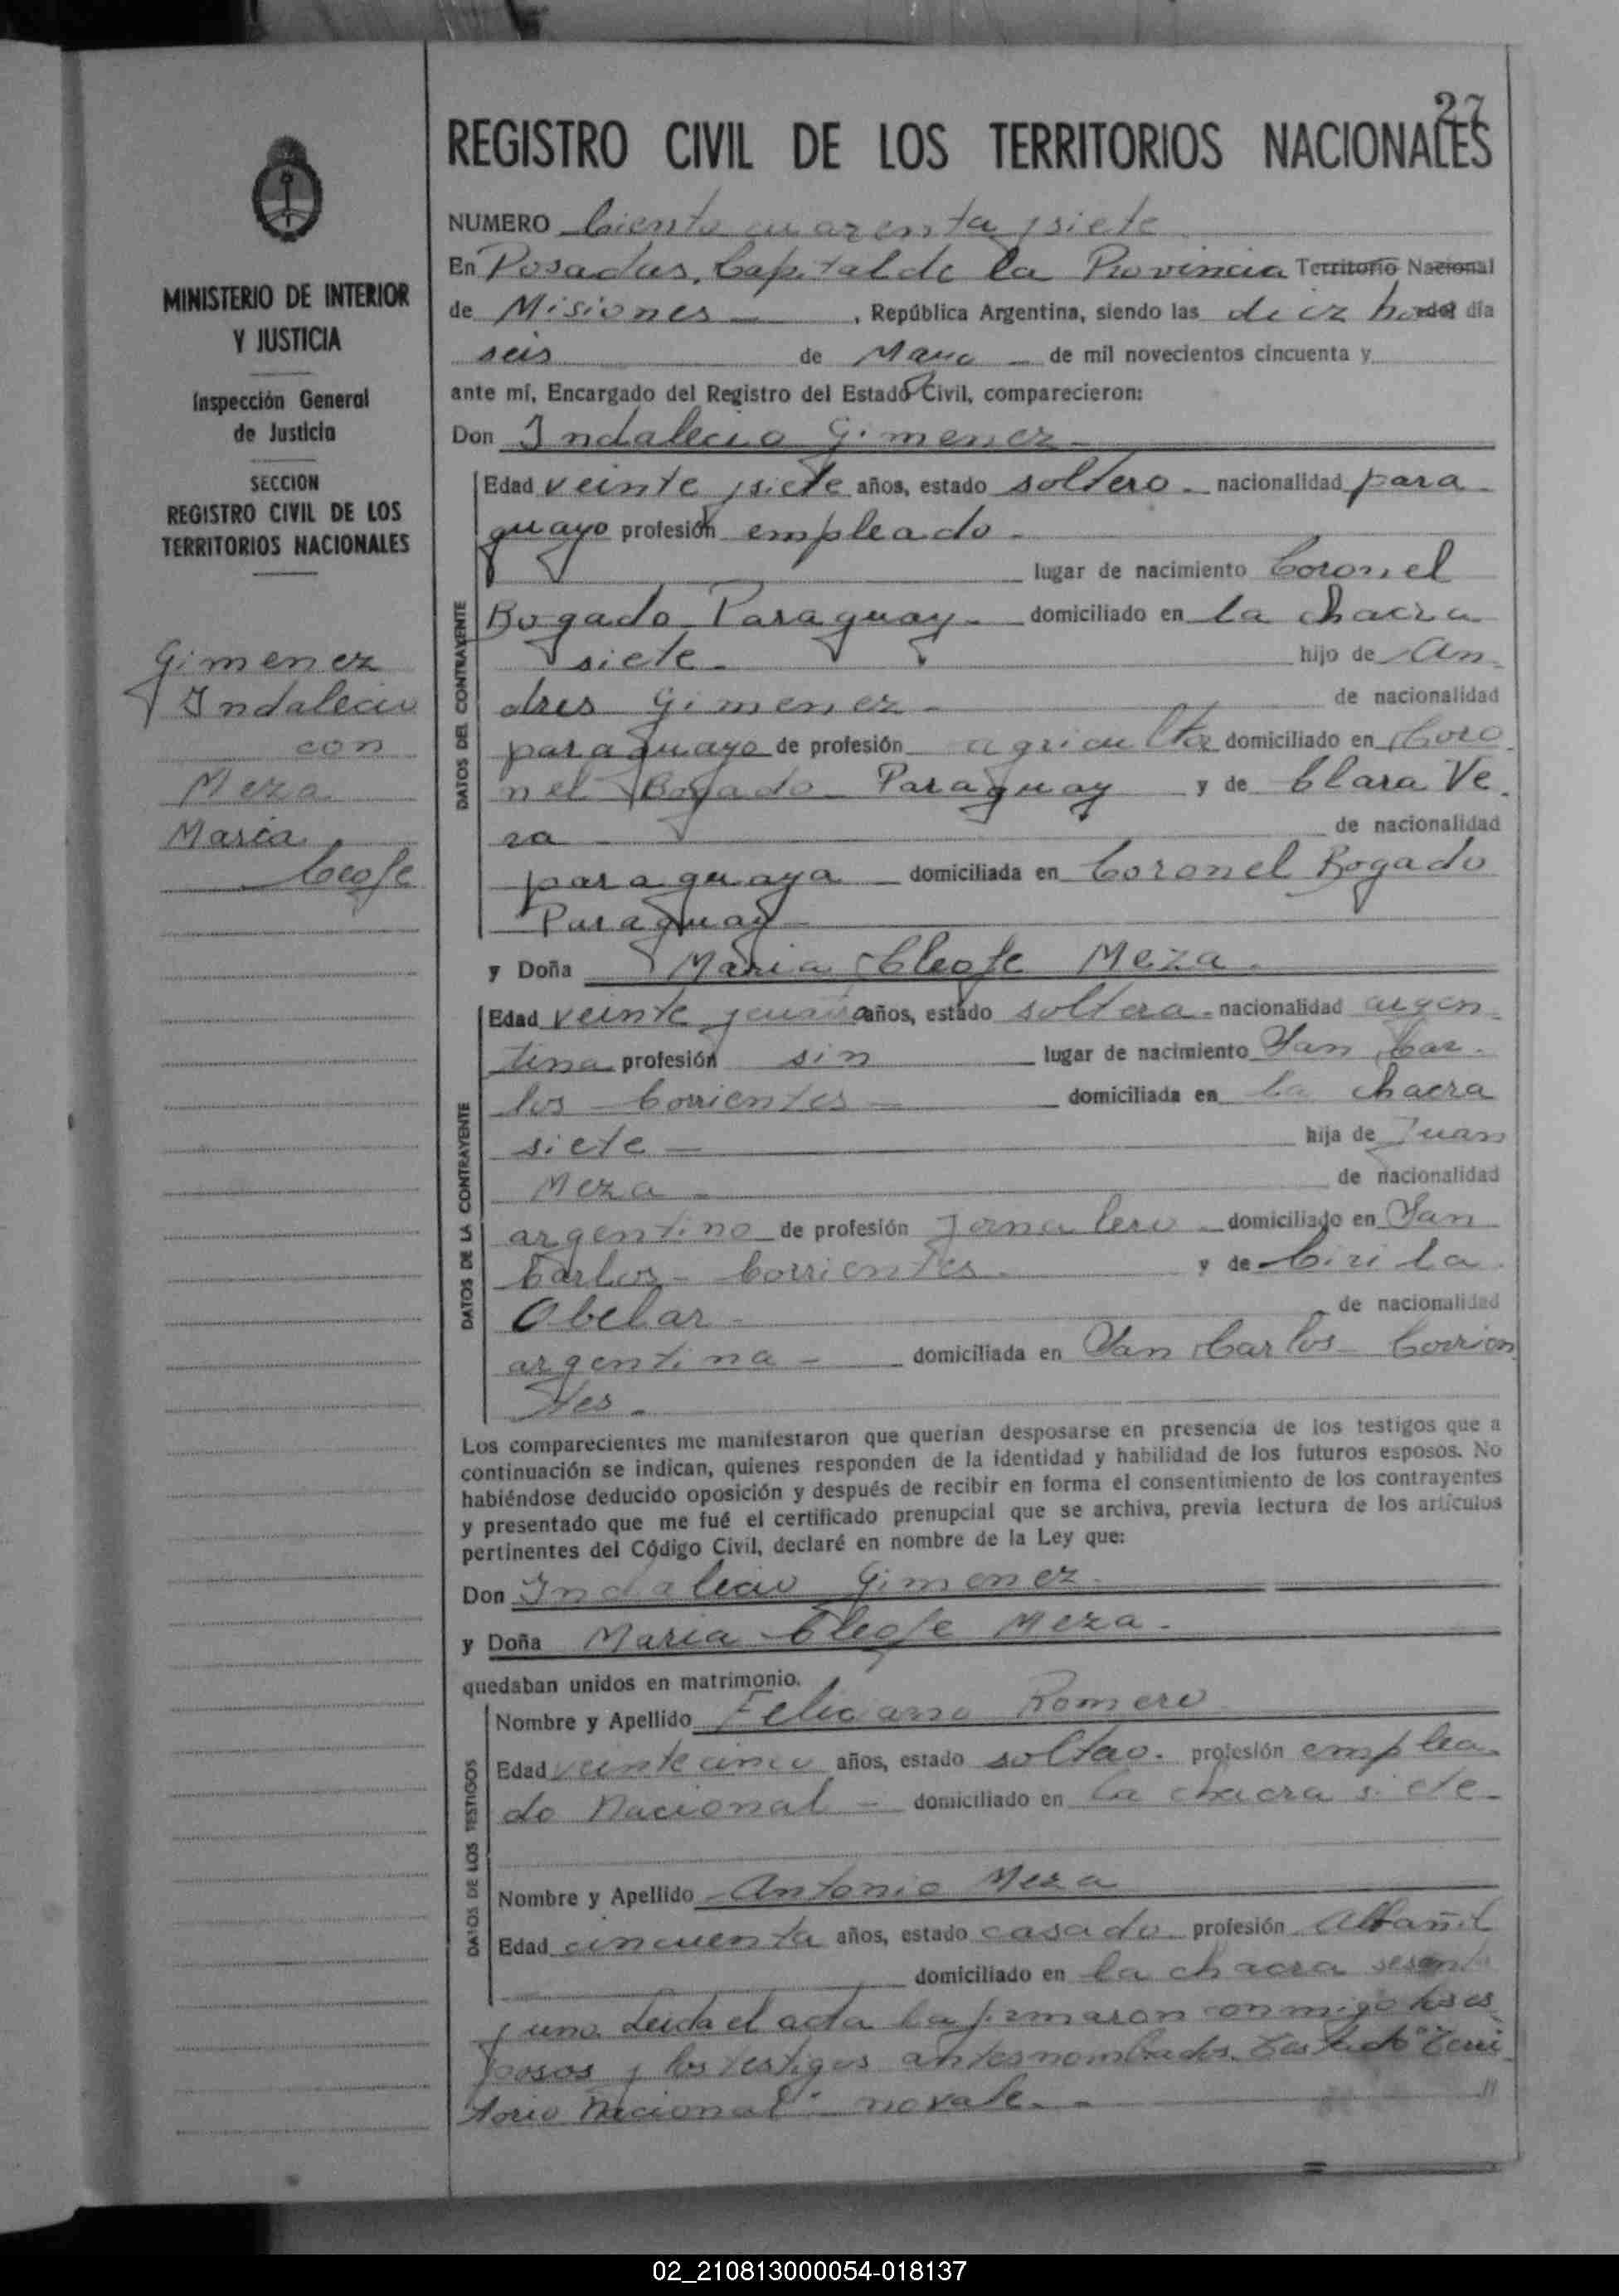 27
REGISTRO CIVIL DE LOS TERRITORIOS NACIONALES
MINISTERIO DE INTERIOR
Y JUSTICIA
Inspección General
de Justicia
SECCION
REGISTRO CIVIL DE LOS
TERRITORIOS NACIONALES
Gimenez
Indalecio
con
Meza
Maria
Cleofe
NUMERO Ciento cuarenta y siete
En Posadas, Capital de la Provincia Territorio Nacional
de Misiones — , República Argentina, siendo las diez horas del día
seis de Mayo — de mil novecientos cincuenta y
ante mí, Encargado del Registro del Estado Civil, comparecieron:
Don Indalecio Gimenez
DATOS DEL CONTRAYENTE
Edad veinte y siete años, estado soltero - nacionalidad para-
guayo profesión empleado -
lugar de nacimiento Coronel
Bogado Paraguay - domiciliado en la chacra
siete - hijo de An-
dres Gimenez - de nacionalidad
paraguayo de profesión agricultor domiciliado en Coro-
nel Bogado Paraguay y de Clara Ve-
ra de nacionalidad
paraguaya domiciliada en Coronel Bogado
Paraguay
y Doña Maria Cleofe Meza -
DATOS DE LA CONTRAYENTE
Edad veinte y años, estado soltera - nacionalidad argen-
tina profesión sin lugar de nacimiento San Car-
los - Corrientes - domiciliada en la chacra
siete - hija de Juan
Meza - de nacionalidad
argentino de profesión Jornalero - domiciliado en San
Carlos - Corrientes - y de Cirila
Obelar - de nacionalidad
argentina - domiciliada en San Carlos - Corrien
tes -
Los comparecientes me manifestaron que querían desposarse en presencia de los testigos que a
continuación se indican, quienes responden de la identidad y habilidad de los futuros esposos. No
habiéndose deducido oposición y después de recibir en forma el consentimiento de los contrayentes
y presentado que me fué el certificado prenupcial que se archiva, previa lectura de los artículos
pertinentes del Código Civil, declaré en nombre de la Ley que:
Don Indalecio Gimenez
y Doña Maria Cleofe Meza -
quedaban unidos en matrimonio.
DATOS DE LOS TESTIGOS
Nombre y Apellido Feliciano Romero
Edad veinte cinco años, estado soltero - profesión emplea-
do Nacional - domiciliado en la chacra siete -
Nombre y Apellido Antonio Meza
Edad cincuenta años, estado casado profesión Albañil
domiciliado en la chacra sesenta
y uno. Leida el acta la firmaron conmigo los es-
posos y los testigos antes nombrados. Testado "Terri-
torio Nacional" no vale. -
02_210813000054-018137